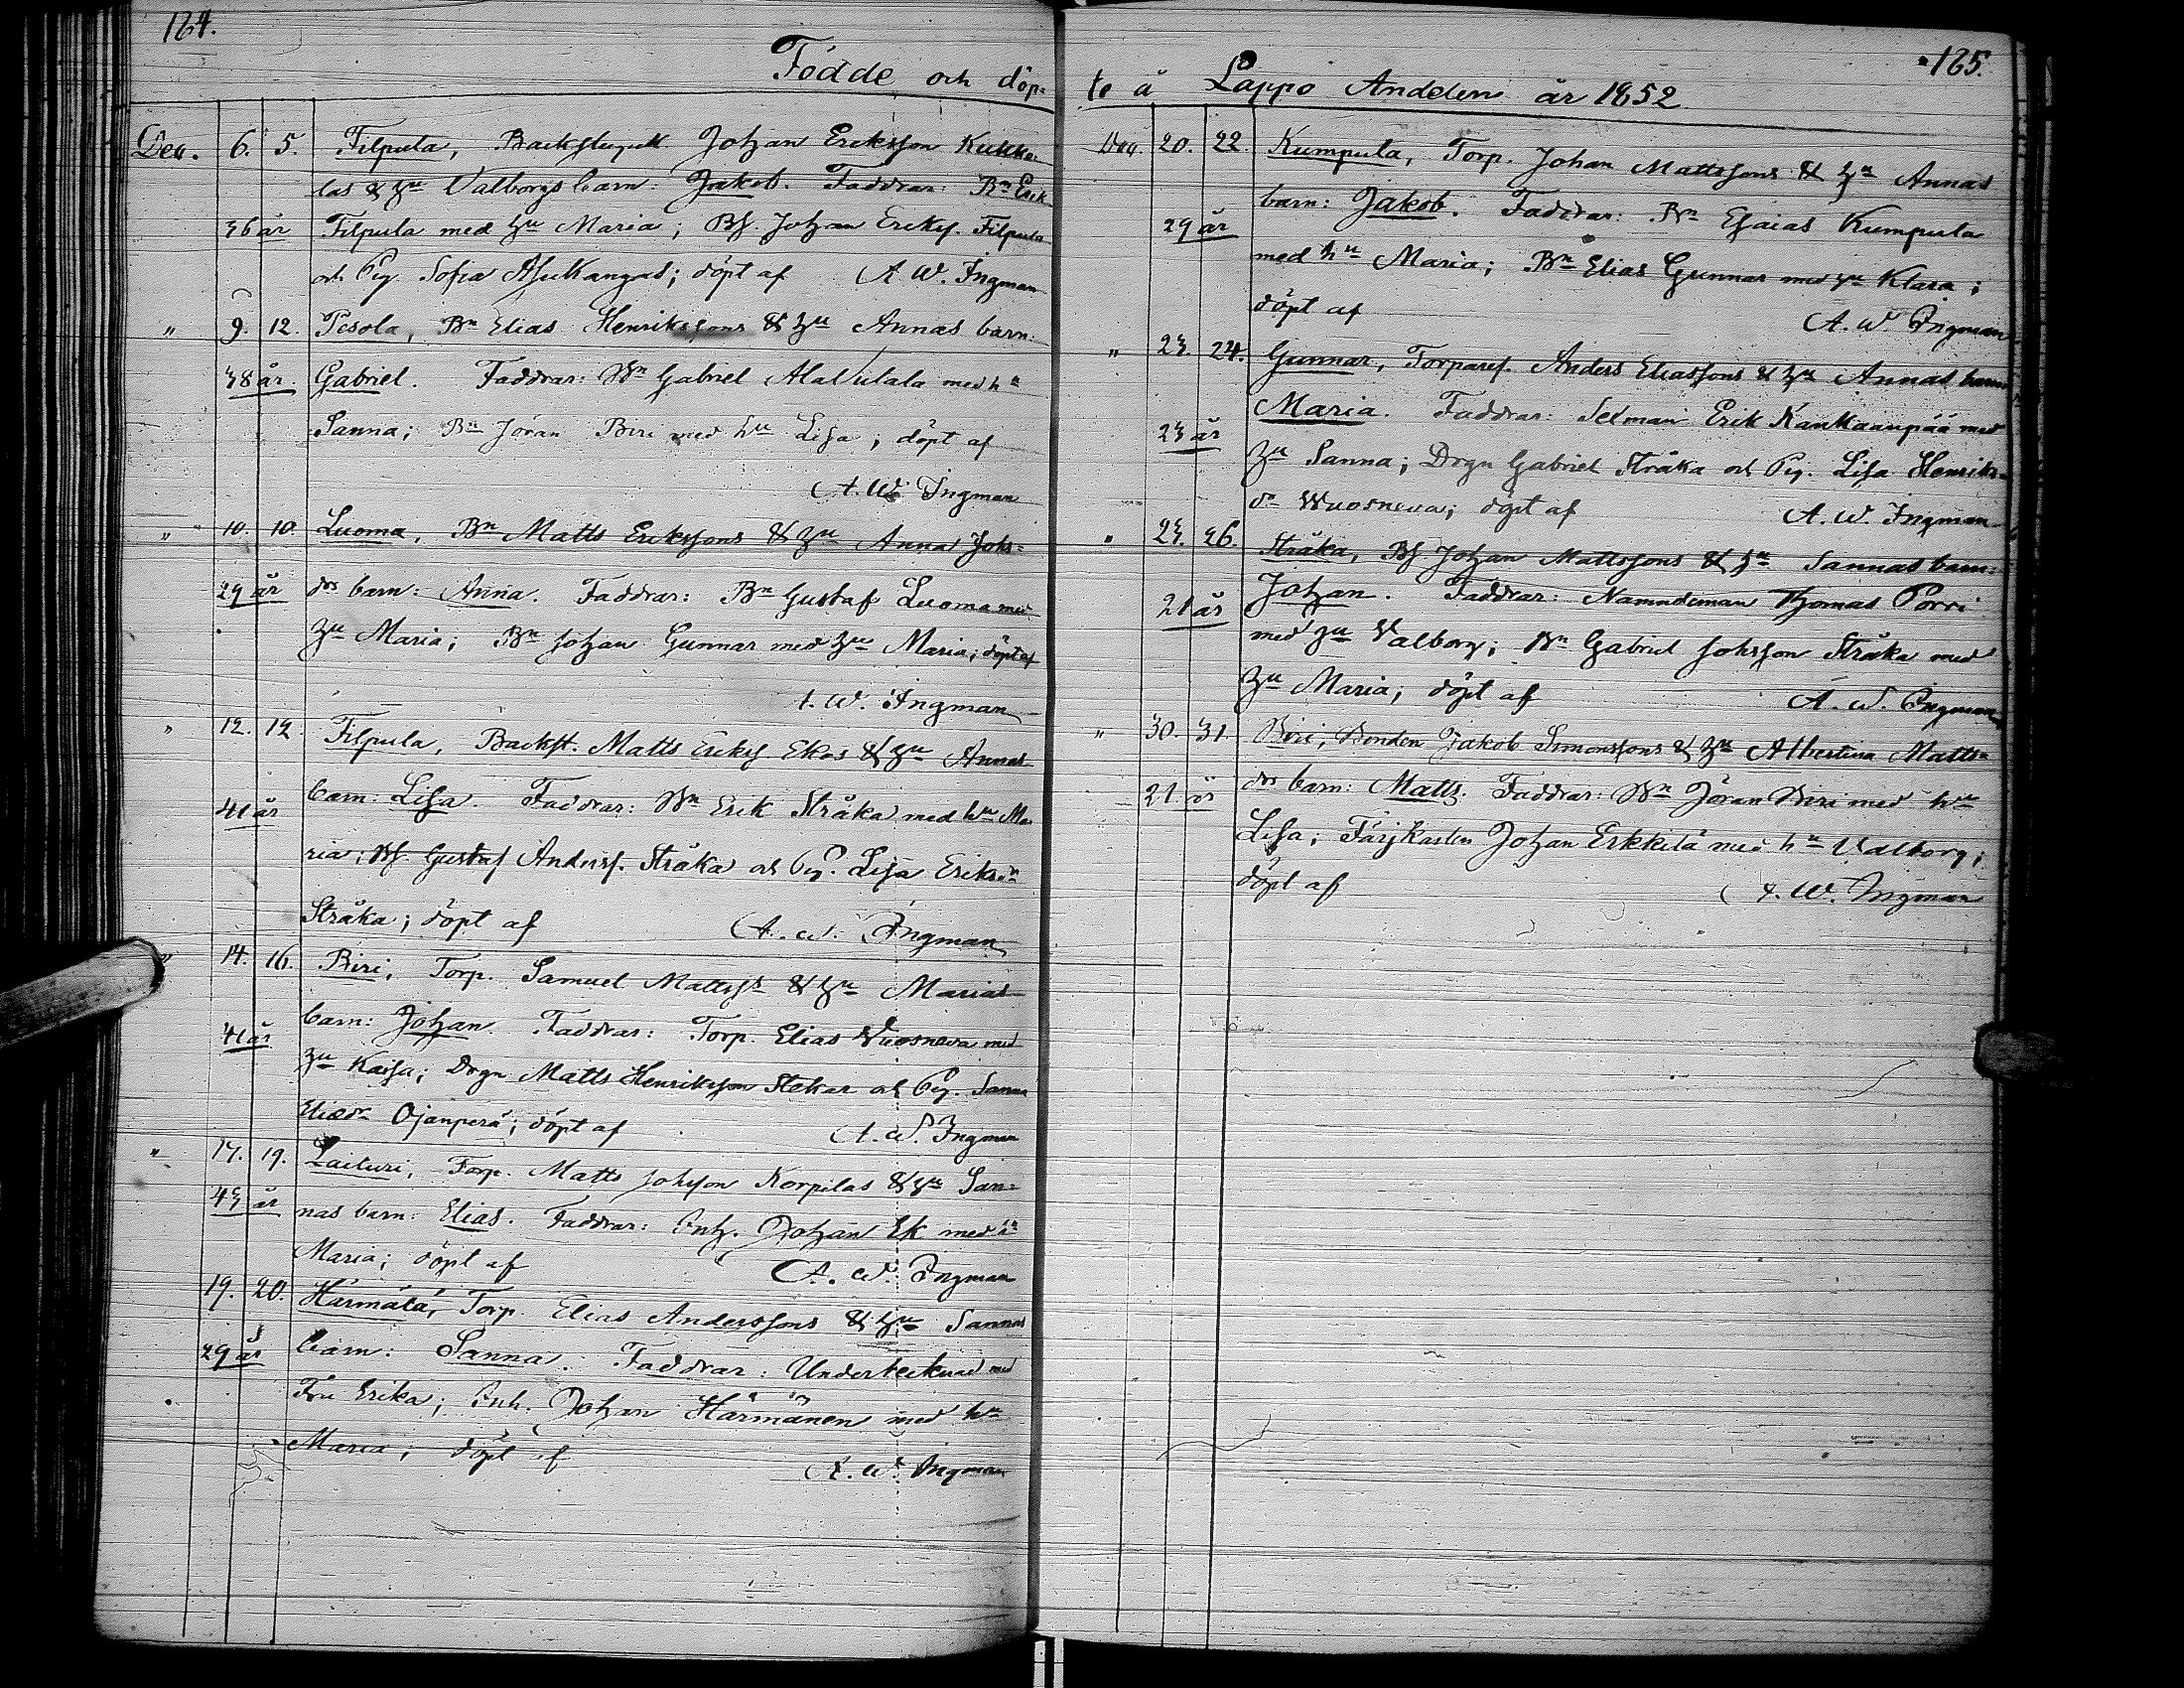 164.
Födde och döp=
Dec. 6. 5. Filpula, Backstuguk Johan Eriksson Kukko-
las & hu Valborgs barn: Jakob. Faddrar: Bn Erik
36 år Filpula med hu Maria; Bs. Johan Eriks. Filpula
och Pig. Sofia Asukangas; döpt af A. W. Ingman
" 9. 12. Pesola, Bn Elias Henrikssons & hu Annas barn:
38 år. Gabriel. Faddrar: Bn Gabriel Alalutala med hu
Sanna; Bn Jöran Biri med hu Lisa; döpt af
A. W. Ingman
" 10. 10. Luoma, Bn Matts Erikssons & hu Anna Johs=
29 år drs barn: Anna. Faddrar: Bn Gustaf Luoma med
hu Maria; Bn Johan Gunnar med hu Maria; döpt af
A. W. Ingman
" 12. 12. Filpula, Backst. Matts Eriks. Ekos & hu Annas
barn: Lisa. Faddrar: Bn Erik Stråka med hu Ma-
41 år
ria; Bs. Gustaf Anders. Stråka och Pig. Lisa Eriksdr
Stråka; döpt af A. W. Ingman
" 14. 16. Biri, Torp. Samuel Mattss & hu Marias
barn: Johan. Faddrar: Torp. Elias Wuosneva med
41 år
hu Kaisa; Drgn Matts Henriksson Stekar och Pig. Sanna
Eliædr Ojanperä; döpt af A. W. Ingman
" 17. 19. Laituri, Torp. Matts Johsson Korpilas & hu San=
43 år nas barn: Elias. Faddrar: Inh. Johan Ek med hu
Maria; döpt af A. W. Ingman
19. 20. Härmälä, Torp. Elias Anderssons & hu Sannas
29 år barn: Sanna. Faddrar: Undertecknad med
Fru Erika; Inh. Johan Härmänen med hu
Maria; döpt af A. W. Ingman
165.
te å Lappo Andelen år 1852
Dec. 20. 22. Kumpula, Torp. Johan Mattssons & hu Annas
barn: Jakob. Faddrar: Bn Esaias Kumpula
29 år
med hu Maria; Bn Elias Gunnar med hu Klara;
döpt af A. W. Ingman
" 23. 24. Gunnar, Torpares. Anders Eliassons & hu Annas barn
Maria. Faddrar: Selman Erik Kankaanpää med
23 år
hu Sanna; Drgn Gabriel Stråka och Pig. Lisa Henriks-
dr Wuosneva; döpt af A. W. Ingman
" 23. 26. Stråka, Bs. Johan Mattssons & hu Sannas barn:
Johan. Faddrar: Namndeman Thomas Porri
21 år
med hu Valborg; Bn Gabriel Johsson Stråka med
hu Maria; döpt af A. W. Ingman
" 30. 31. Biri, Bonden Jakob Simonssons & hu Albertina Matts=
21 år drs barn: Matts. Faddrar: Bn Jöran Biri med hu
Lisa; Färjkarlen Johan Erkkilä med hu Valborg;
döpt af A. W. Ingman